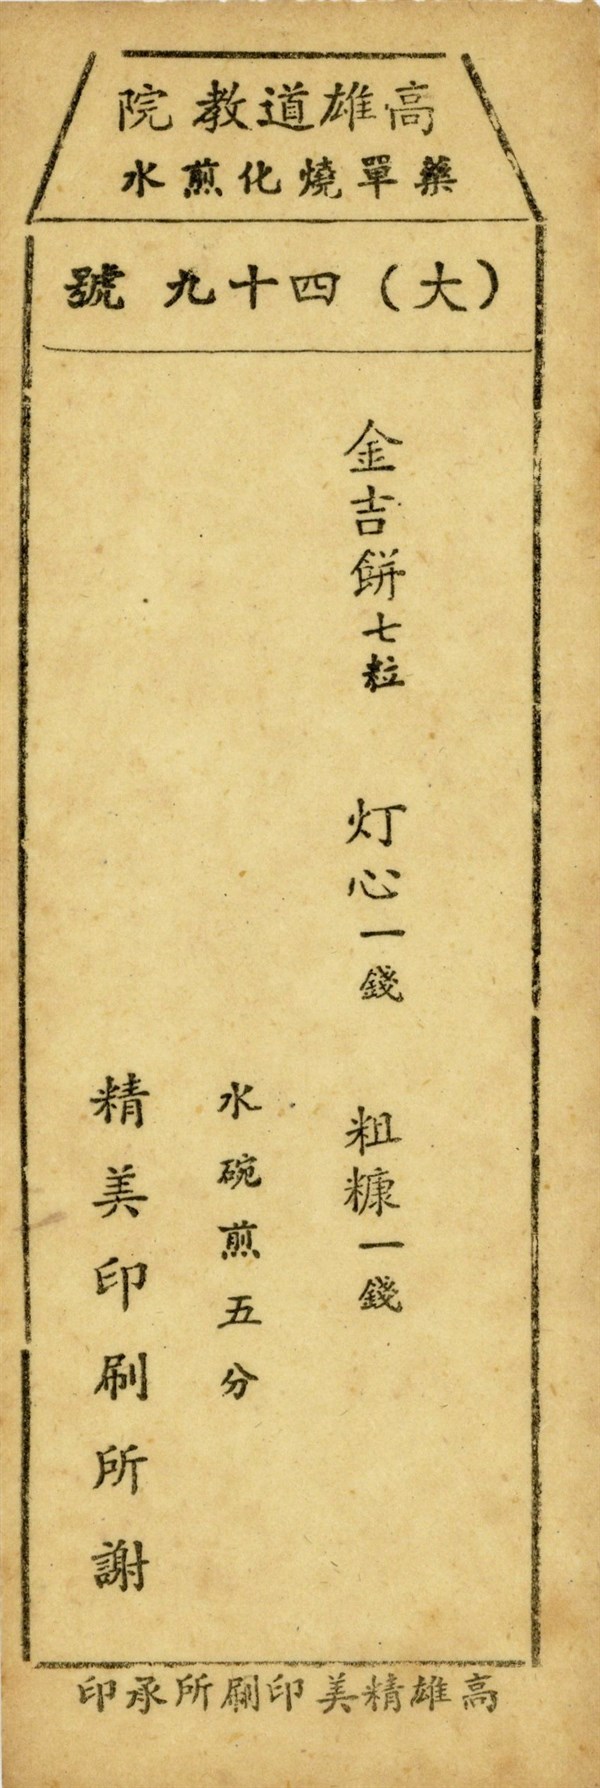 高雄道教院
藥單燒化煎水
（大）四十九號
金吉餅七粒 灯心一錢 粗糠一錢
水碗煎五分
精美印刷所謝
高雄精美印刷所承印